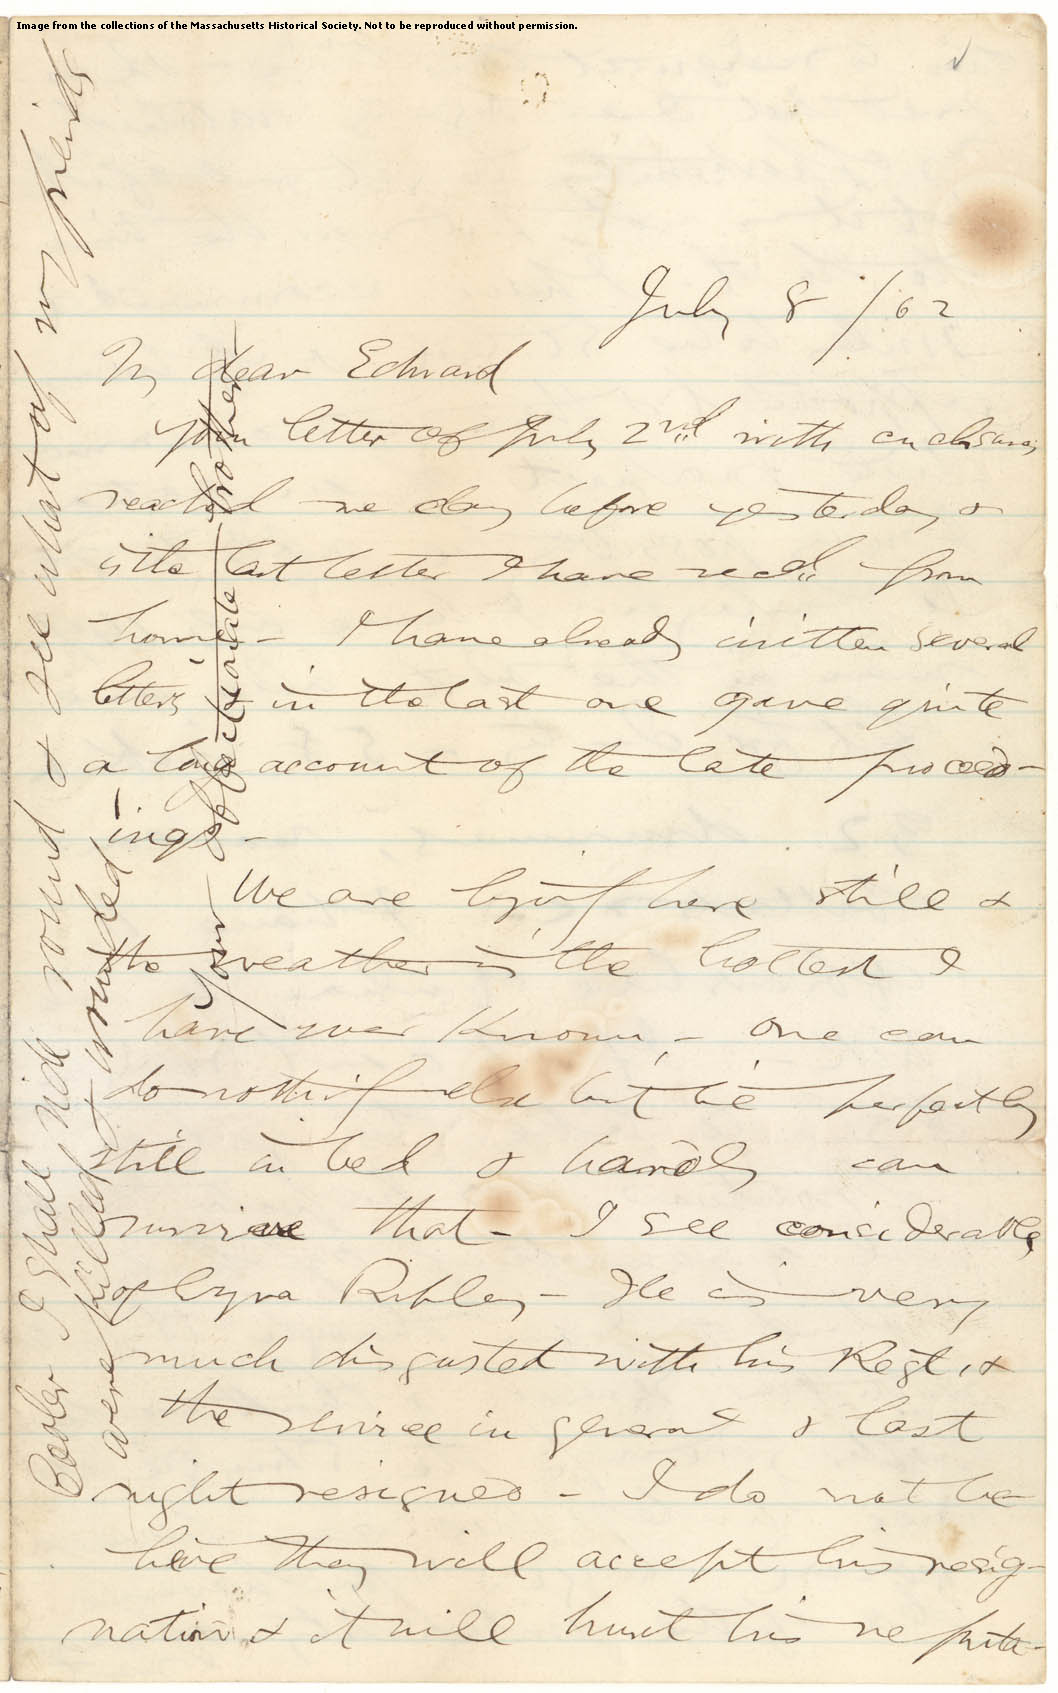 Image from the collections of the Massachusetts Historical Society. Not to be reproduced without permission.
July 8 /62
My dear Edward
Your letter of July 2nd with enclosures
reached me day before yesterday &
is the last letter I have recd. from
home - I have already written several
letters & in the last one gave quite
a long account of the late proceed-
ings -
We are lying here still &
the weather is the hottest I
have ever known, - one can
do nothing else but lie perfectly
still in bed & hardly can
survive that - I see considerable
of Ezra Ripley - He is very
much disgusted with his Regt, &
the service in general & last
night resigned - I do not be-
lieve they will accept his resig-
nation & it will hurt his reputa-
cooler I shall ride round & see what of my friends
were killed & wounded
Your affectionate brother